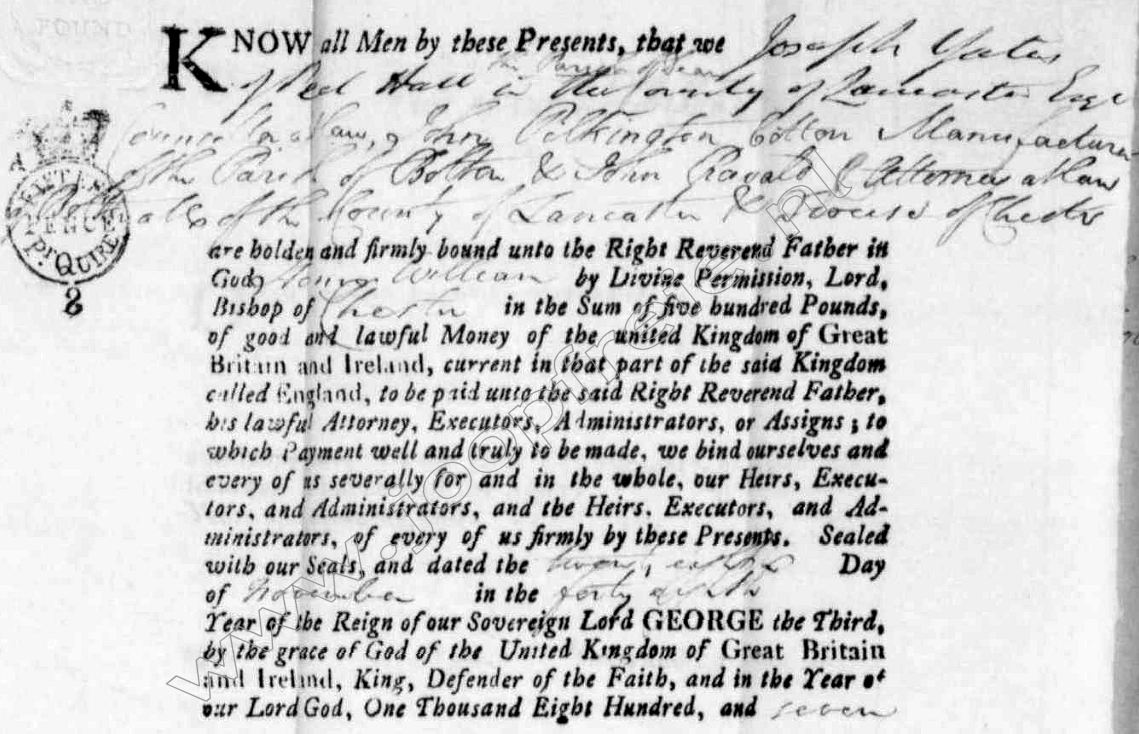 KNOW all Men by these Presents, that we Joseph Yates
the Parish of Dean
of Peel Hall in the County of Lancaster Esqr
Councellor a Law, John Pilkington Cotton Manufacturer
of the Parish of Bolton & John Attorney at Law
Bolton all of the County of Lancaster & Diocese of Chester
are holden and firmly bound unto the Right Reverend Father in
God, Henry William by Divine Permission, Lord,
Bishop of Chester in the Sum of five hundred Pounds,
of good and lawful Money of the united Kingdom of Great
Britain and Ireland, current in that part of the said Kingdom
called England, to be paid unto the said Right Reverend Father,
his lawful Attorney, Executors, Administrators, or Assigns; to
which Payment well and truly to be made, we bind ourselves and
every of us severally for and in the whole, our Heirs, Execu-
tors, and Administrators, and the Heirs, Executors, and Ad-
ministrators, of every of us firmly by these Presents. Sealed
with our Seals, and dated the twenty eighth Day
of November in the forty eighth
Year of the Reign of our Sovereign Lord GEORGE the Third,
by the grace of God of the United Kingdom of Great Britain
and Ireland, King, Defender of the Faith, and in the Year of
our Lord God, One Thousand Eight Hundred, and seven
PENCE
Pr QUIRE
8